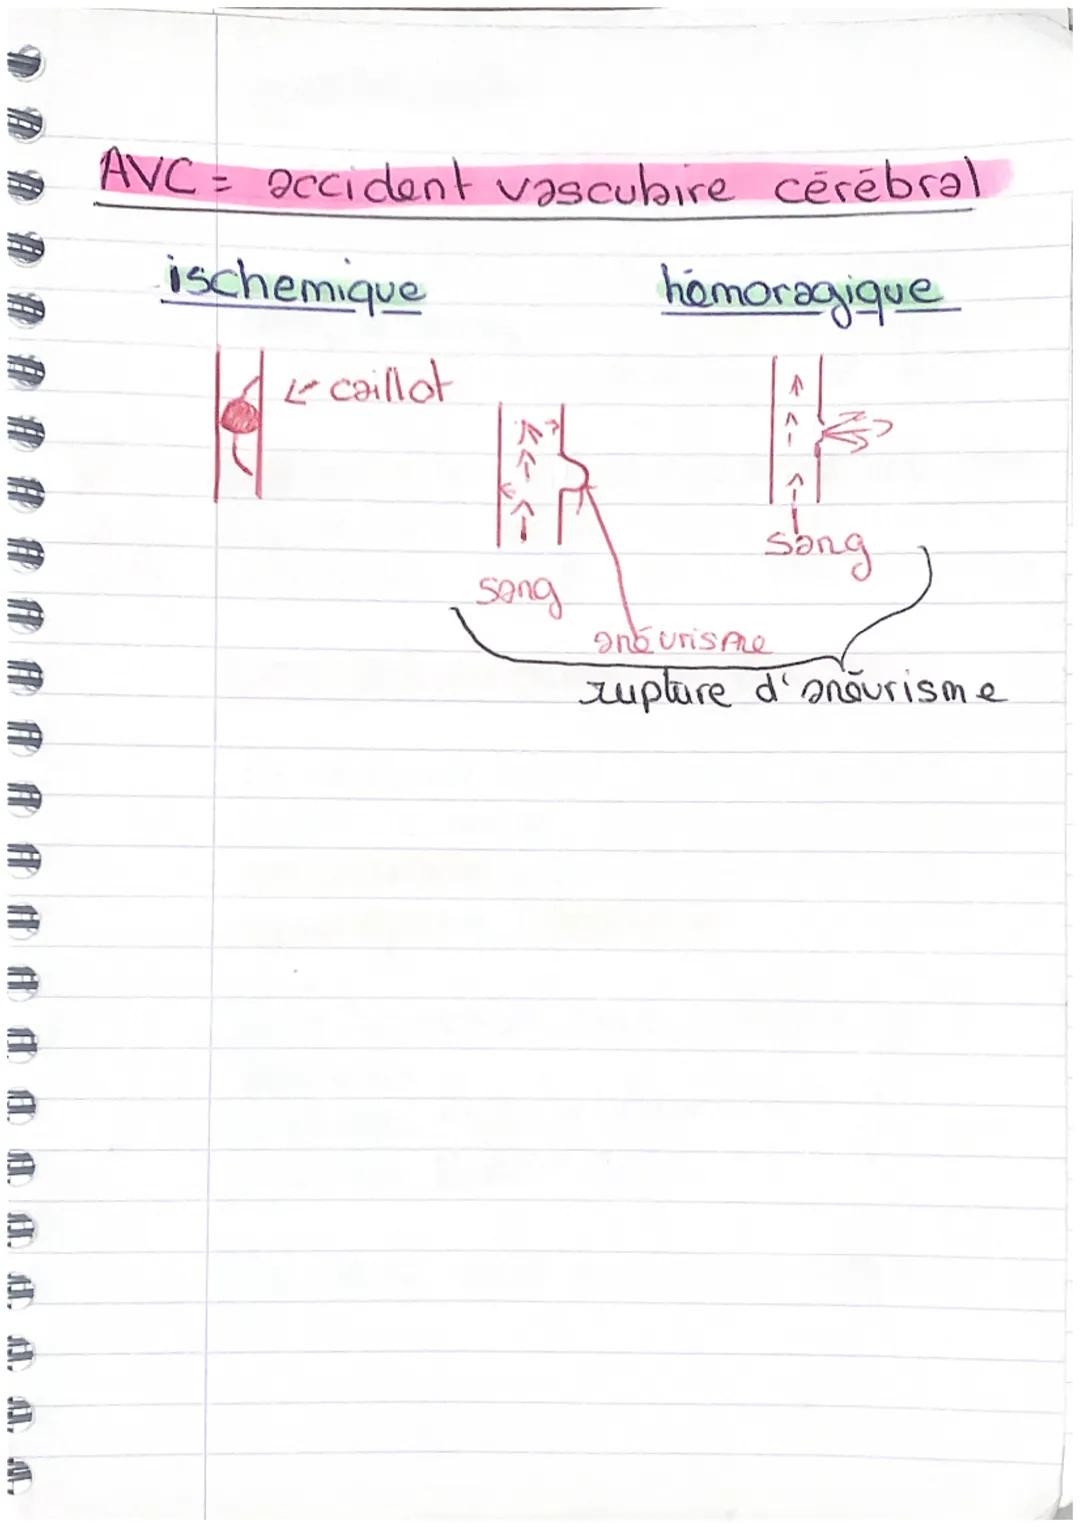 AVC = accident vasculaire cérébral
ischemique hémoragique
caillot
sang
sang
anéurisme
rupture d'anéurisme